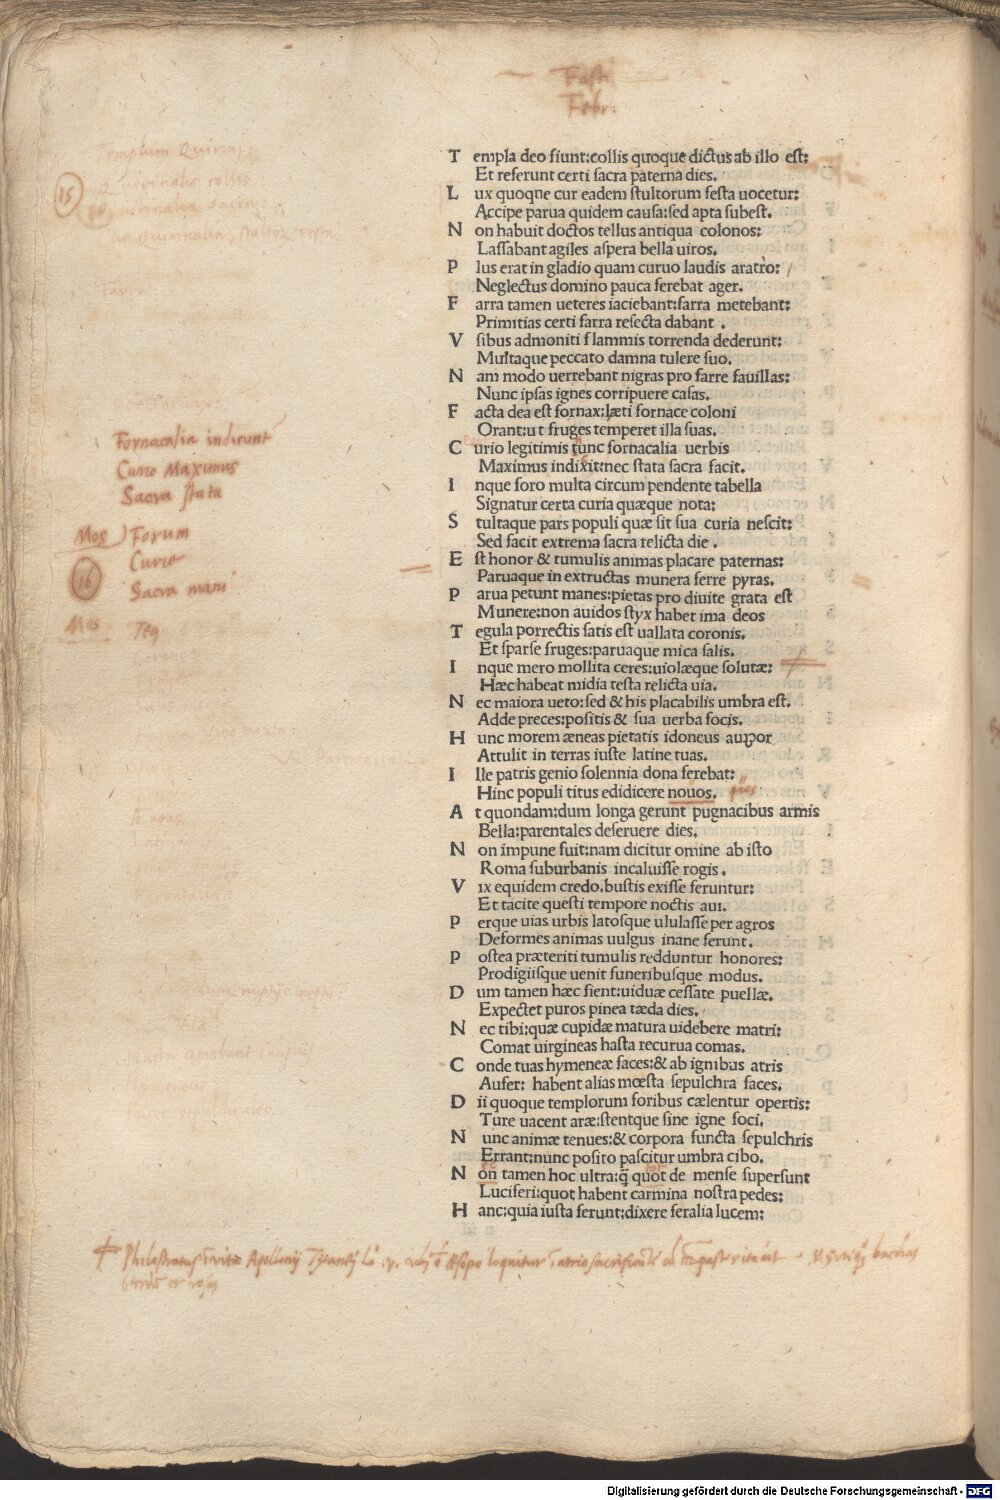 Fasti
Febr.
T empla deo fiunt:collis quoque dictus ab illo est:
Et referunt certi sacra paterna dies.
L ux quoqne cur eadem stultorum festa uocetur:
Accipe parua quidem causa:sed apta subest.
N on habuit doctos tellus antiqua colonos:
Lassabant agiles aspera bella uiros.
P lus erat in gladio quam curuo laudis aratro:
Neglectus domino pauca ferebat ager.
F arra tamen ueteres iaciebant:farra metebant:
Primitias certi farra resecta dabant .
V sibus admoniti flammis torrenda dederunt:
Multaque peccato damna tulere suo.
N am modo uerrebant nigras pro farre fauillas:
Nunc ipsas ignes corripuere casas.
F acta dea est fornax:læti fornace coloni
Orant:ut fruges temperet illa suas.
C urio legitimis tunc fornacalia uerbis
Maximus indixit:nec stata sacra facit.
I nque foro multa circum pendente tabella
Signatur certa curia quæque nota:
S tultaque pars populi quæ sit sua curia nescit:
Sed facit extrema sacra relicta die .
E st honor & tumulis animas placare paternas:
Paruaque in extructas munera ferre pyras.
P arua petunt manes:pietas pro diuite grata est
Munere:non auidos styx habet ima deos
T egula porrectis satis est uallata coronis.
Et sparse fruges:paruaque mica salis.
I nque mero mollita ceres:uiolæque solutæ:
Hæc habeat midia testa relicta uia.
N ec maiora ueto:sed & his placabilis umbra est.
Adde preces:positis & sua uerba focis.
H unc morem æneas pietatis idoneus auꝑor
Attulit in terras iuste latine tuas.
I lle patris genio solennia dona ferebat:
Hinc populi titus edidicere nouos. pios
A t quondam:dum longa gerunt pugnacibus armis
Bella:parentales deseruere dies.
N on impune fuit:nam dicitur omine ab isto
Roma suburbanis incaluisse rogis .
V ix equidem credo.bustis exisse feruntur:
Et tacite questi tempore noctis aui.
P erque uias urbis latosque ululasse per agros
Deformes animas uulgus inane ferunt.
P ostea præteriti tumulis redduntur honores:
Prodigiisque uenit funeribusque modus.
D um tamen hæc fient:uiduæ cessate puellæ.
Expectet puros pinea tæda dies.
N ec tibi:quæ cupidæ matura uidebere matri:
Comat uirgineas hasta recurua comas.
C onde tuas hymeneæ faces:& ab ignibus atris
Aufer: habent alias mœsta sepulchra faces.
D ii quoque templorum foribus cælentur opertis:
Ture uacent aræ:stentque sine igne foci.
N unc animæ tenues:& corpora functa sepulchris
Errant:nunc posito pascitur umbra cibo.
N on tamen hoc ultra:q̃ quot de mense supersunt
Luciferi:quot habent carmina nostra pedes:
H anc:quia iusta ferunt:dixere feralia lucem:
Templum Quirini
15
Quirinalis collis
Fornacalia indicunt
Curio Maximus
Sacra stata
Mos Forum
Curie
16
Sacra mani
Mos Teg
Philostratus Apollonij loquitur
Digitalisierung gefördert durch die Deutsche Forschungsgemeinschaft - DFG